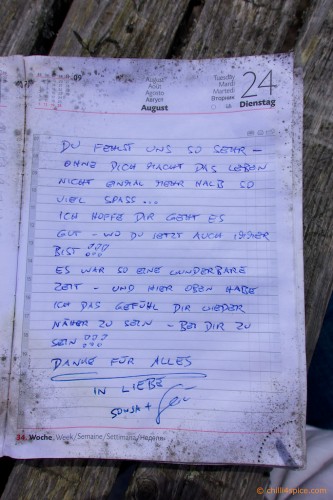 09
August
Août
Agosto
Август
August
Tuesday
Mardi
Martedì
Вторник
24
Dienstag
DU FEHLST UNS SO SEHR –
OHNE DICH MACHT DAS LEBEN
NICHT EINMAL MEHR HALB SO
VIEL SPASS...
ICH HOFFE DIR GEHT ES
GUT – WO DU JETZT AUCH IMMER
BIST !!!
ES WAR SO EINE WUNDERBARE
ZEIT – UND HIER OBEN HABE
ICH DAS GEFÜHL DIR WIEDER
NÄHER ZU SEIN – BEI DIR ZU
SEIN !!!
DANKE FÜR ALLES
IN LIEBE
SONJA +
34. Woche, Week/Semaine/Settimana/Неделя
© chilli4spice.com